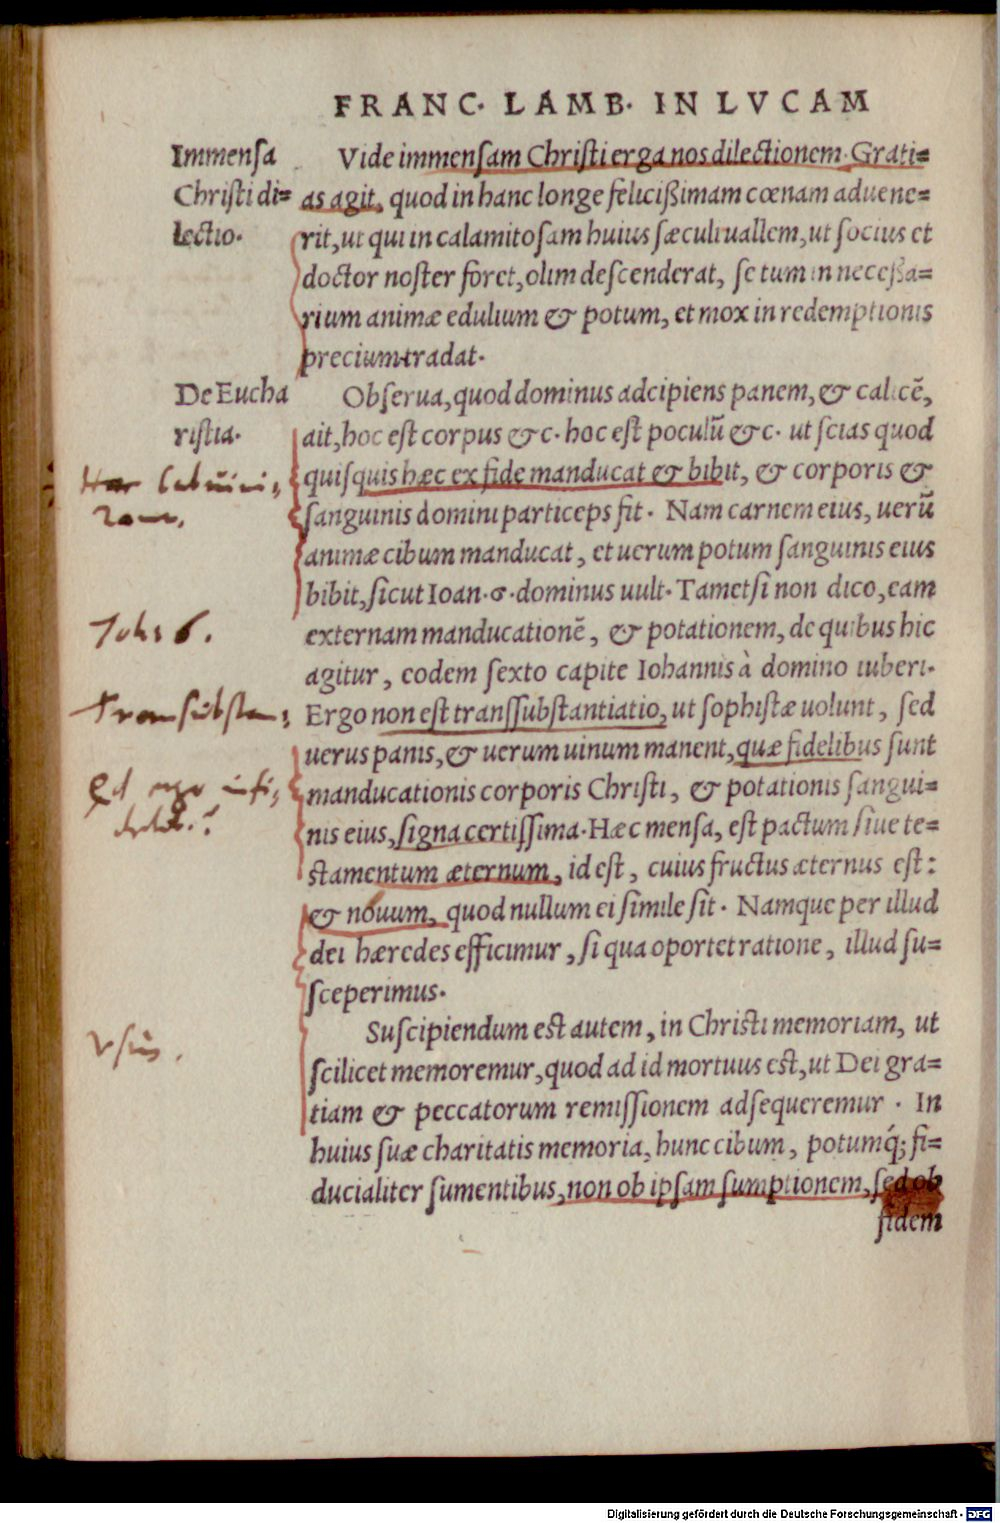 FRANC. LAMB. IN LVCAM
Immensa
Christi di=
lectio.
Vide immensam Christi erga nos dilectionem. Grati=
as agit, quod in hanc longe felicißimam cœnam aduene=
rit, ut qui in calamitosam huius sæculi uallem, ut socius et
doctor noster foret, olim descenderat, se tum in neceßa=
rium animæ edulium & potum, et mox in redemptionis
precium tradat.
De Eucha
ristia.
Obserua, quod dominus adcipiens panem, & calicẽ,
ait, hoc est corpus &c. hoc est poculũ &c. ut scias quod
quisquis hæc ex fide manducat & bibit, & corporis &
sanguinis domini particeps fit. Nam carnem eius, uerũ
animæ cibum manducat, et uerum potum sanguinis eius
bibit, sicut Ioan. 6. dominus uult. Tametsi non dico, eam
Johs 6.
externam manducationẽ, & potationem, de quibus hic
agitur, eodem sexto capite Iohannis à domino iuberi.
Transsubstan,
Ergo non est transsubstantiatio, ut sophistæ uolunt, sed
uerus panis, & uerum uinum manent, quæ fidelibus sunt
manducationis corporis Christi, & potationis sangui=
nis eius, signa certissima. Hæc mensa, est pactum siue te=
stamentum æternum, id est, cuius fructus æternus est:
& nouum, quod nullum ei simile sit. Namque per illud
dei hæredes efficimur, si qua oportet ratione, illud su=
sceperimus.
Vsus.
Suscipiendum est autem, in Christi memoriam, ut
scilicet memoremur, quod ad id mortuus est, ut Dei gra=
tiam & peccatorum remissionem adsequeremur. In
huius suæ charitatis memoria, hunc cibum, potumq́; fi=
ducialiter sumentibus, non ob ipsam sumptionem, sed ob
fidem
Digitalisierung gefördert durch die Deutsche Forschungsgemeinschaft - DFG